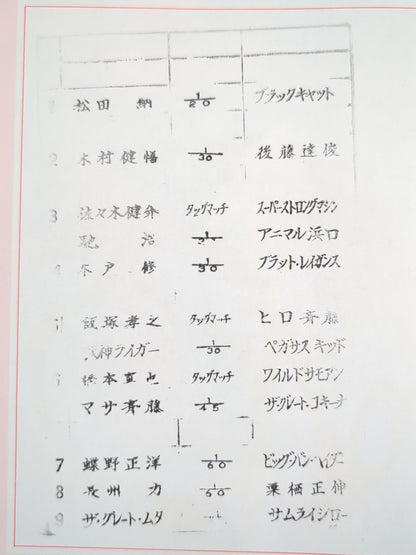 1 松田 納 1/20 ブラックキャット
2 木村健悟 1/30 後藤達俊
3 佐々木健介 タッグマッチ スーパーストロングマシン
馳 浩 アニマル浜口
木戸 修 1/30 ブラット・レイガンス
飯塚孝之 タッグマッチ ヒロ斉藤
神ライガー 1/30 ペガサスキッド
橋本真也 タッグマッチ ワイルドサモアン
マサ斉藤 1/45 ザ・グレート・コキーナ
7 蝶野正洋 1/60 ビッグ・バン・ベイダー
8 長州 力 1/60 栗栖正伸
9 ザ・グレート・ムタ サムライシロー